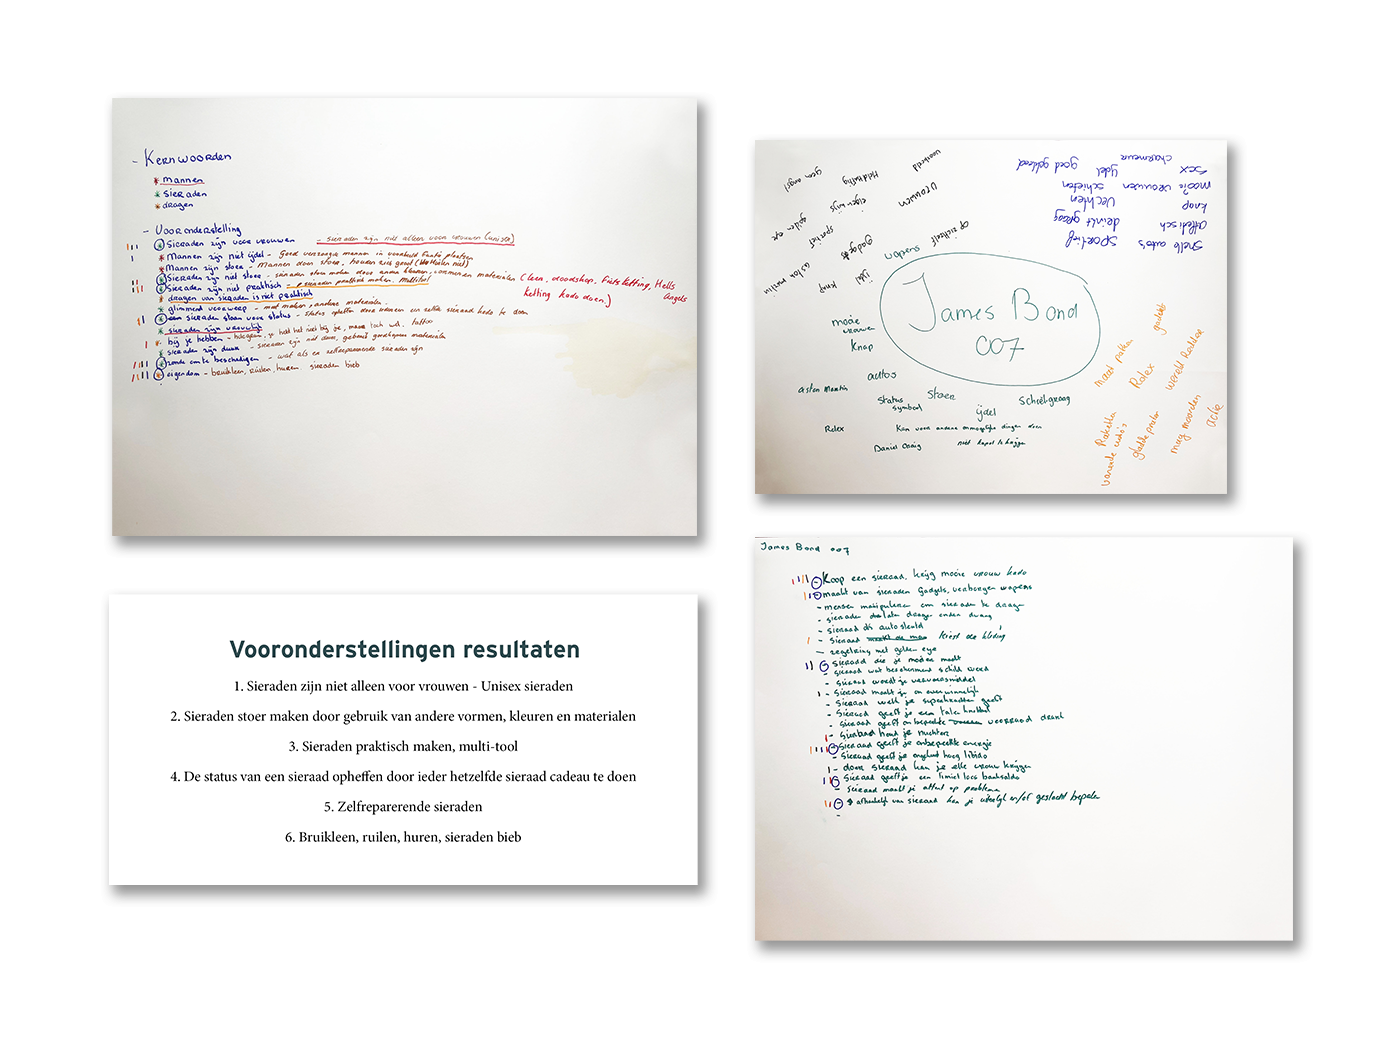 - Kernwoorden
* mannen
* sieraden
* dragen
- Vooronderstelling
* Sieraden zijn voor vrouwen - sieraden zijn niet alleen voor vrouwen (unisex)
* Mannen zijn niet ijdel - Goed verzorgde mannen in voorbeeld functie plaatsen
* Mannen zijn stoer - Mannen doen stoer, houden zich groot (huilen niet)
* Sieraden zijn niet stoer - sieraden stoer maken door andere kleuren, vormen en materialen (leer, doodshop, Fietsketting, Hells Angels
ketting kado doen)
* Sieraden zijn niet praktisch - sieraden praktisch maken. Multitool
* dragen van sieraden is niet praktisch
* glimmend voorwerp - mat maken, andere materialen.
* een sieraden staan voor status - status opheffen door iedereen een zelfde sieraad kado te doen
* sieraden zijn vrouwlijk
* bij je hebben - je hebt het niet bij je, maar toch wel. tattoo
* sieraden zijn duur - sieraden zijn niet duur, gebruik goedkopere materialen
* zonde om te beschadigen - wat als er zelfreparerende sieraden zijn
* eigendom - bruikleen, ruilen, huren. sieraden bieb
James Bond
007
geen angst
Heldhaftig
vrouwen
eigenwijs
golden eye
gadgets
wapens
aston martin
ijdel
knap
mooie
vrouwen
knap
autos
aston martin
status
symbool
stoer
ijdel
Rolex
Kan voor andere onmogelijke dingen doen
Daniel Craig
niet kapot te krijgen
sex
ijdel
goed gekleed
charmeur
mooie vrouwen
schieten
knap
vechten
Athletisch
drinkt graag
snelle auto's
sportief
gadgets
maat pakken
Rolex
wereld Redder
Raketten
varende auto's
gladde prater
mag moorden
actie
Vooronderstellingen resultaten
1. Sieraden zijn niet alleen voor vrouwen - Unisex sieraden
2. Sieraden stoer maken door gebruik van andere vormen, kleuren en materialen
3. Sieraden praktisch maken, multi-tool
4. De status van een sieraad opheffen door ieder hetzelfde sieraad cadeau te doen
5. Zelfreparerende sieraden
6. Bruikleen, ruilen, huren, sieraden bieb
James Bond 007
- Koop een sieraad, krijg mooie vrouw kado
- maakt van sieraden Gadgets, verborgen wapens
- mensen manipuleren om sieraden te dragen
- sieraden laten dragen onder dwang
- sieraad als autosleutel
- sieraad kiest de kleding
- zegelring met golden eye
- sieraad die je mooier maakt
- sieraad wat beschermend schild word
- sieraad wordt je vervoersmiddel
- sieraad maakt je onoverwinnelijk
- sieraad welk je superkrachten geeft
- sieraad geeft je een talen knobbel
- sieraad geeft onbeperkte voorraad drank
- sieraad houd je nuchter
- sieraad geeft je onbeperkte energie
- sieraad geeft je ongekend hoog libido
- door sieraad kan je elke vrouw krijgen
- sieraad geeft je een limiet loos banksaldo
- sieraad maakt je attent op problemen
- afhankelijk van sieraad kan je uiterlijk en/of geslacht bepalen